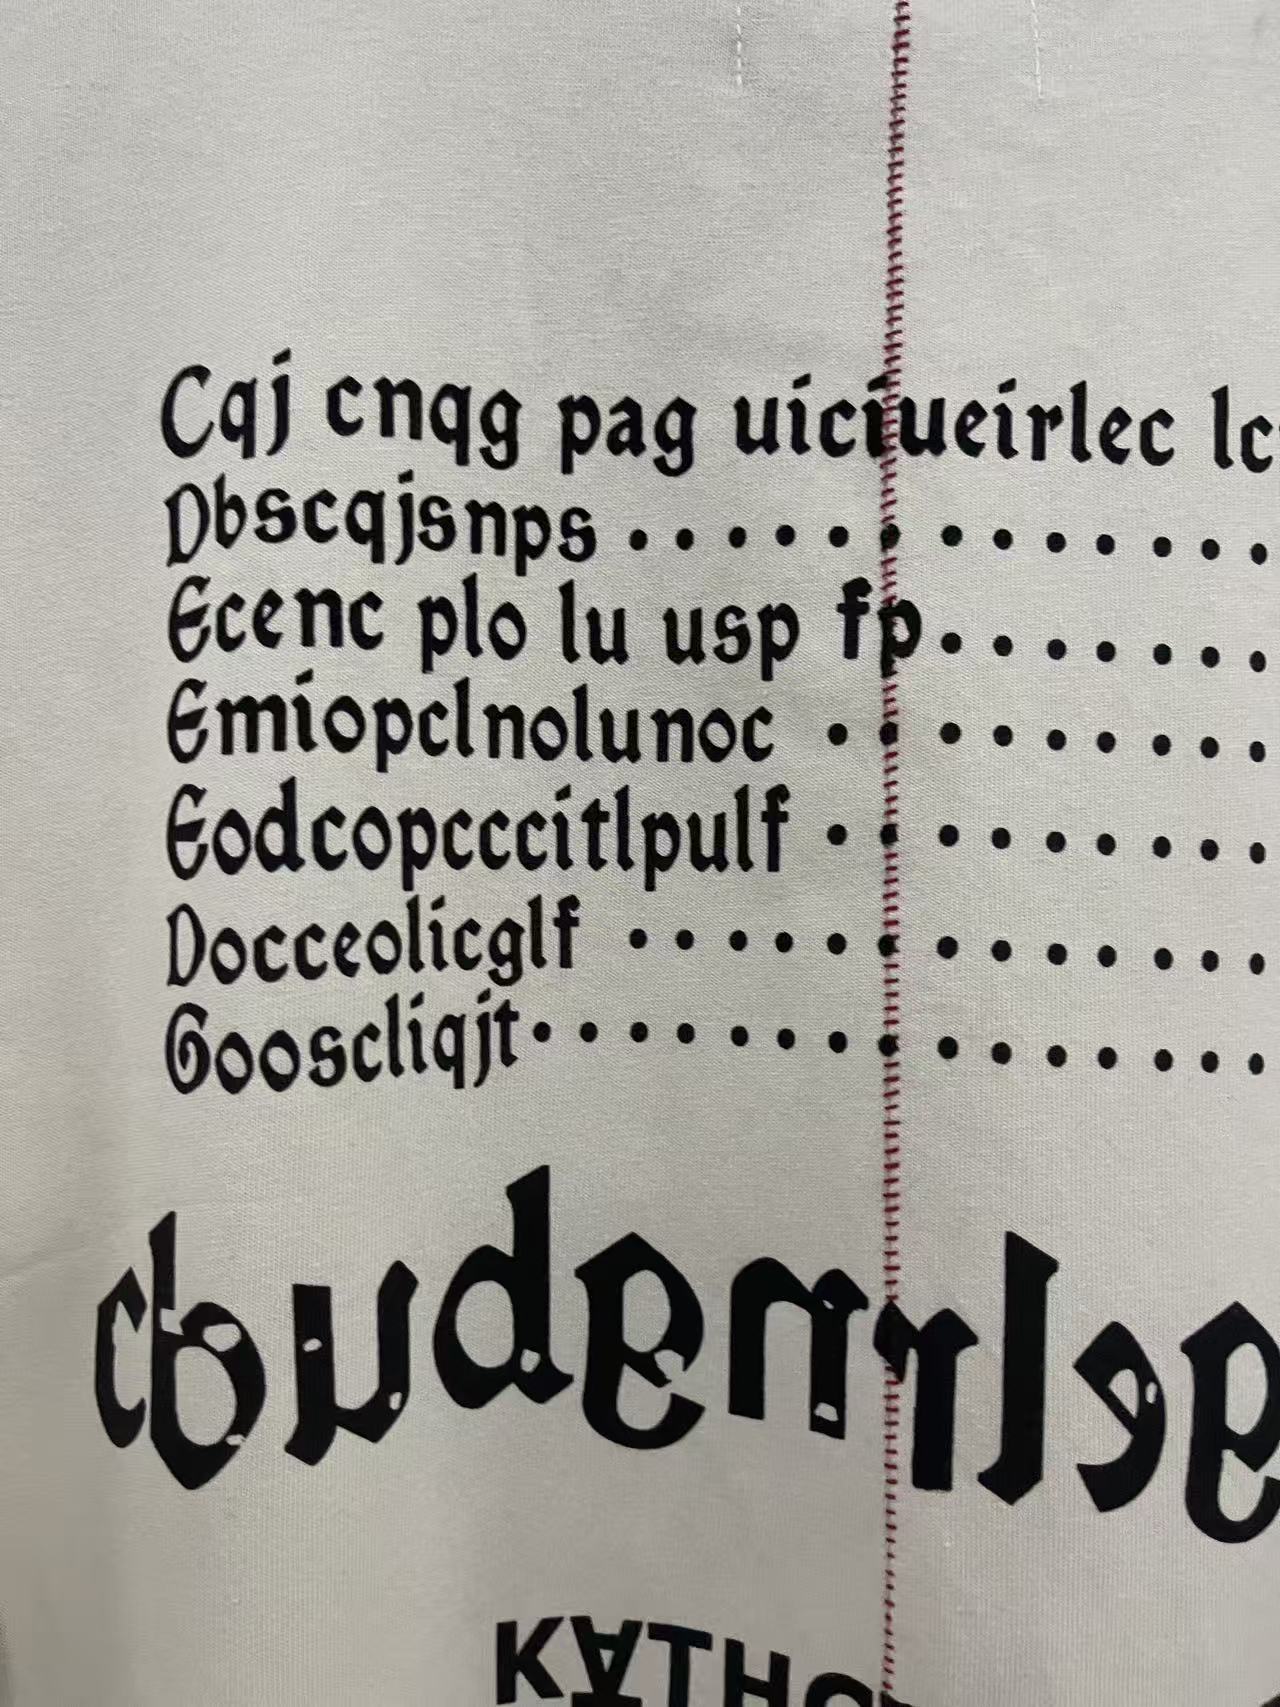 Cqj cnqg pag uiciueirlec lc
Dbscqjsnps . . . . . . . . . . . . .
Ecenc plo lu usp fp . . . . . . .
Emiopclnolunoc . . . . . . . . .
Eodcopcccitlpulf . . . . . . . . .
Docceolicglf . . . . . . . . . . . . .
Gooscliqjt . . . . . . . . . . . . . . .